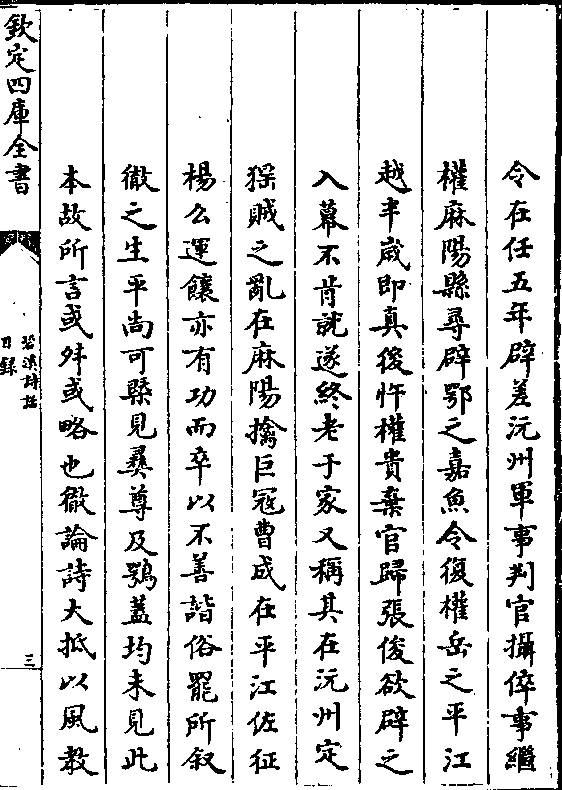 令在任五年辟差沅州軍事判官攝倅事繼
權麻陽縣尋辟鄂之嘉魚令復權岳之平江
越半嵗即真後忤權貴棄官歸張俊欲辟之
入幕不肯就遂終老于家又稱其在沅州定
猺賊之亂在麻陽擒巨冦曹成在平江佐征
楊么運饟亦有功而卒以不善諧俗罷所叙
徹之生平尚可槩見彛尊及鶚蓋均未見此
本故所言或舛或略也徹論詩大抵以風教
欽定四庫全書
䂬溪詩話
目錄
三